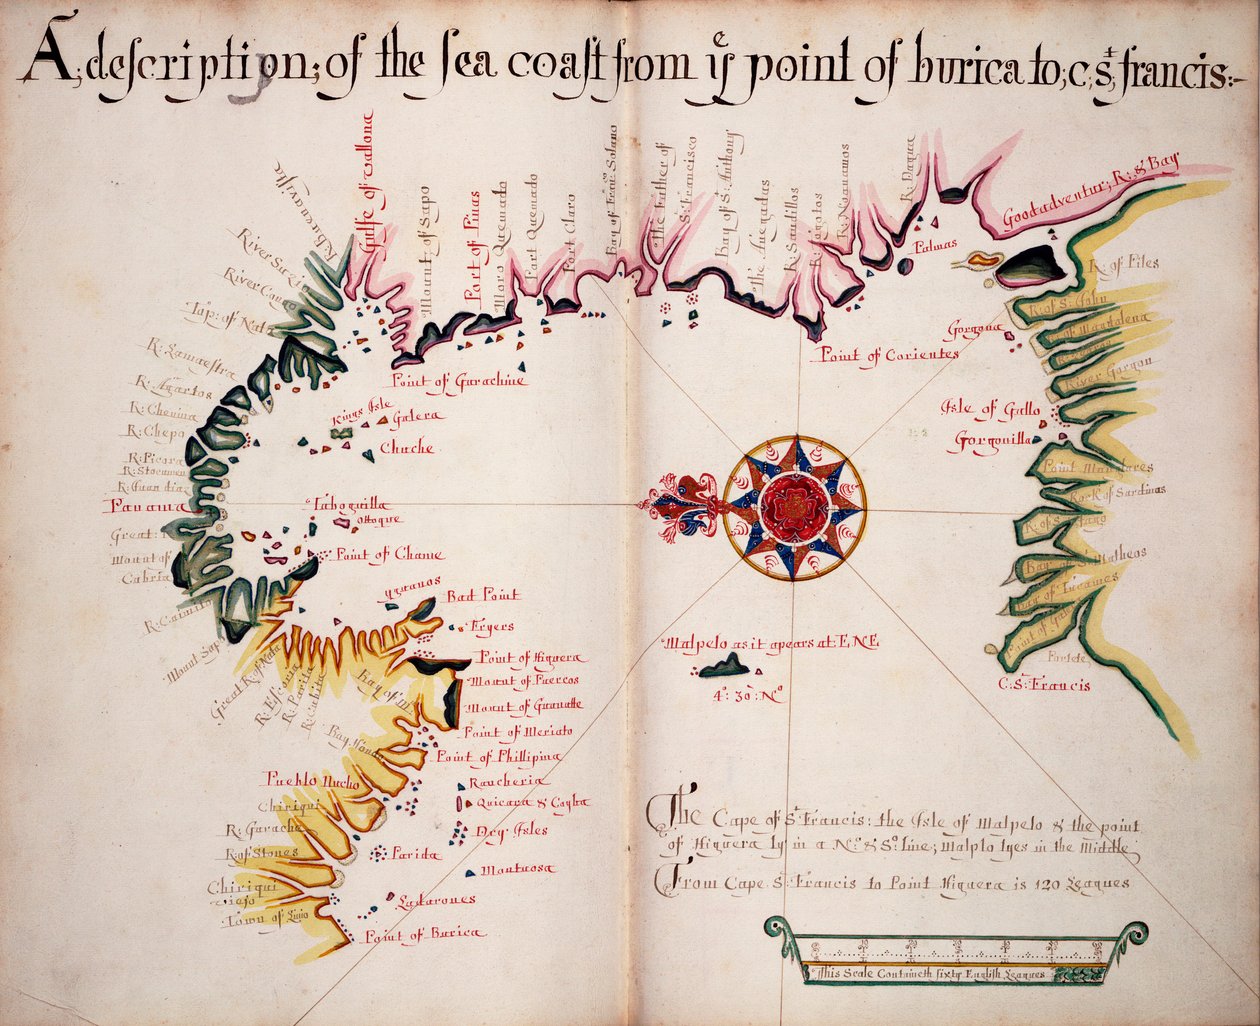 A descriptijon; of the sea coast from yᵉ point of burica to; c; Sᵗ; francis:-
R: Buenavista
Gulfe of Vallona
Mount of Sapo
Port of Pinas
Moro Quemado
Port Quemado
Port Claro
Bay of Franᶜᵒ Solano
The Father of
Sᵗ: Francisco
Bay of Sᵗ: Anthony
the Anegadas
R: Saudillos
R: Noanamos
R: Dagua
Good adventur; R: & Bay
Palmas
R: of Piles
R: of Sᵗ: John
R: of Magdalena
River Gorgon
Gorgona
Point of Corientes
Isle of Gallo
Gorgonilla
Point Manglares
Rock of Sardinas
R: of Sᵗ: Iago
Bay of Sᵗ: Matheos
Portete
C: Sᵗ: Francis
River
River
Iap: of Nata
R: Lamaestra
R: Agartos
R: Chenina
R: Chepo
R: Picora
R: Juan diaz
Panama
Great:
Mount of
Cabria
R: Caimito
Mount Sap
Point of Garachine
Kings Isle
Galera
Chuche
Taboguilla
Ottoque
Point of Chame
Yguanos
Bad Point
Fryers
Point of Higuera
Mount of Puercos
Mount of Guanatte
Point of Meriato
Point of Phillipina
Great R: of Nata
R: Parita
Bay Honda
Pueblo Nucho
Rancheria
Quicara & Cayba
Dry Isles
Chiriqui
R: Garache
R: of Stones
Parida
Montuosa
Chiriqui
viejo
Ladarones
Town of
Point of Burica
Malpelo as it apears at E.N.E
4ᵈ: 30: Nᵒ
The Cape of Sᵗ Francis: the Isle of Malpelo & the point
of Higuera ly in a Nᵒ: & Sᵒ: line; Malplo lyes in the Middle
From Cape Sᵗ: Francis to Point Higuera is 120 Leagues
This Scale Containeth sixty English Leagues